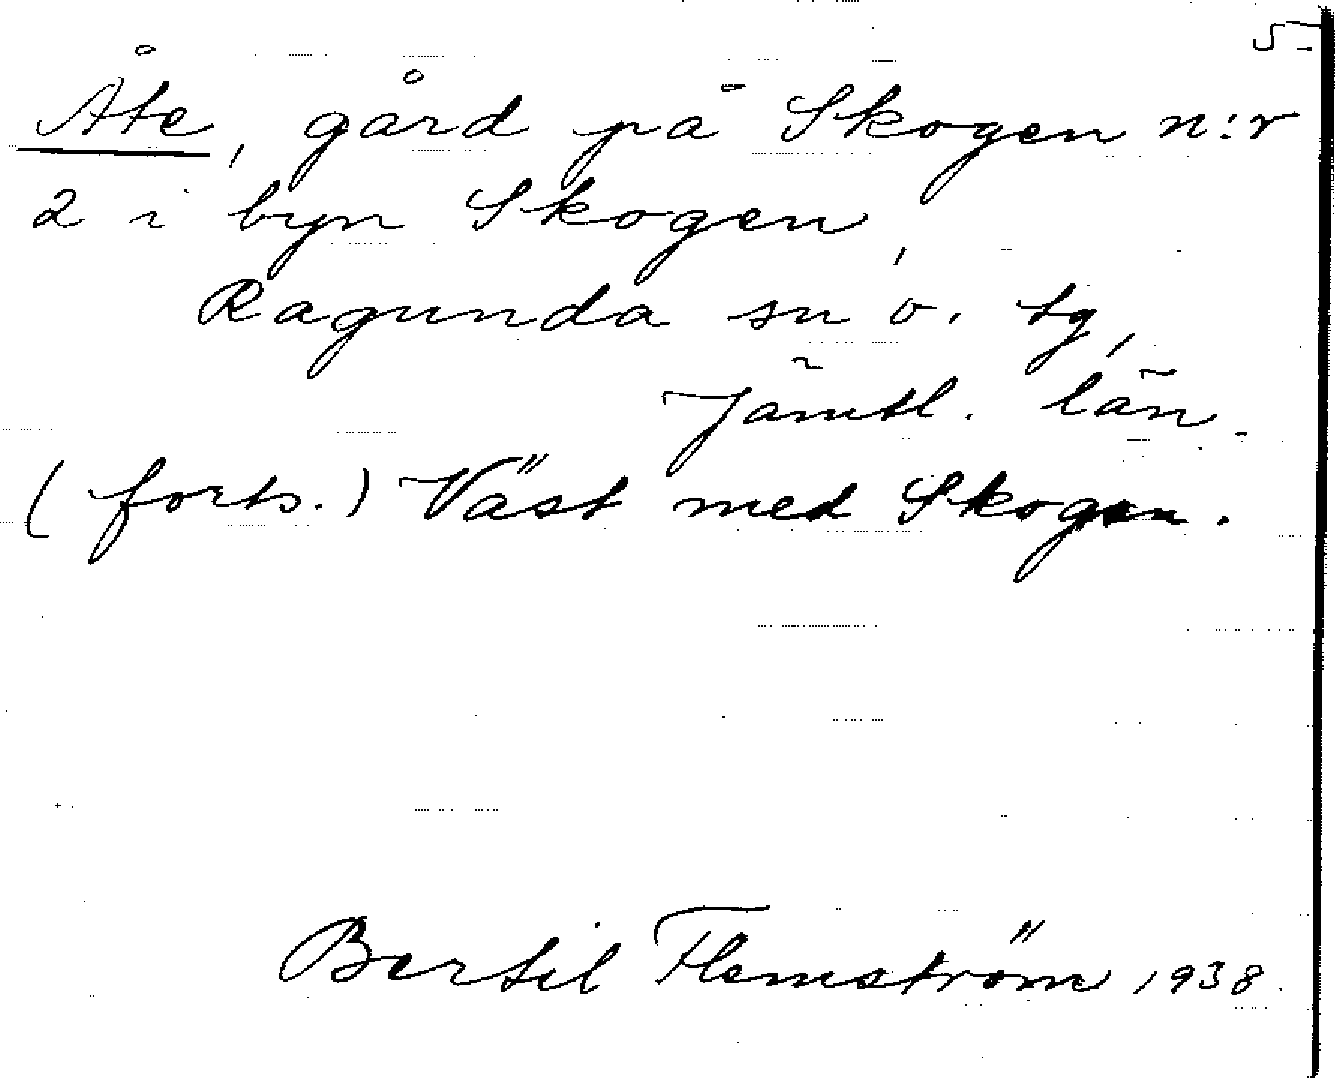 5.
Åte, gård på Skogen n:r
2 i byn Skogen,
Ragunda sn o. tg,
Jämtl. län.
(forts.) Väst med Skogen.
Bertil Flemström 1938.